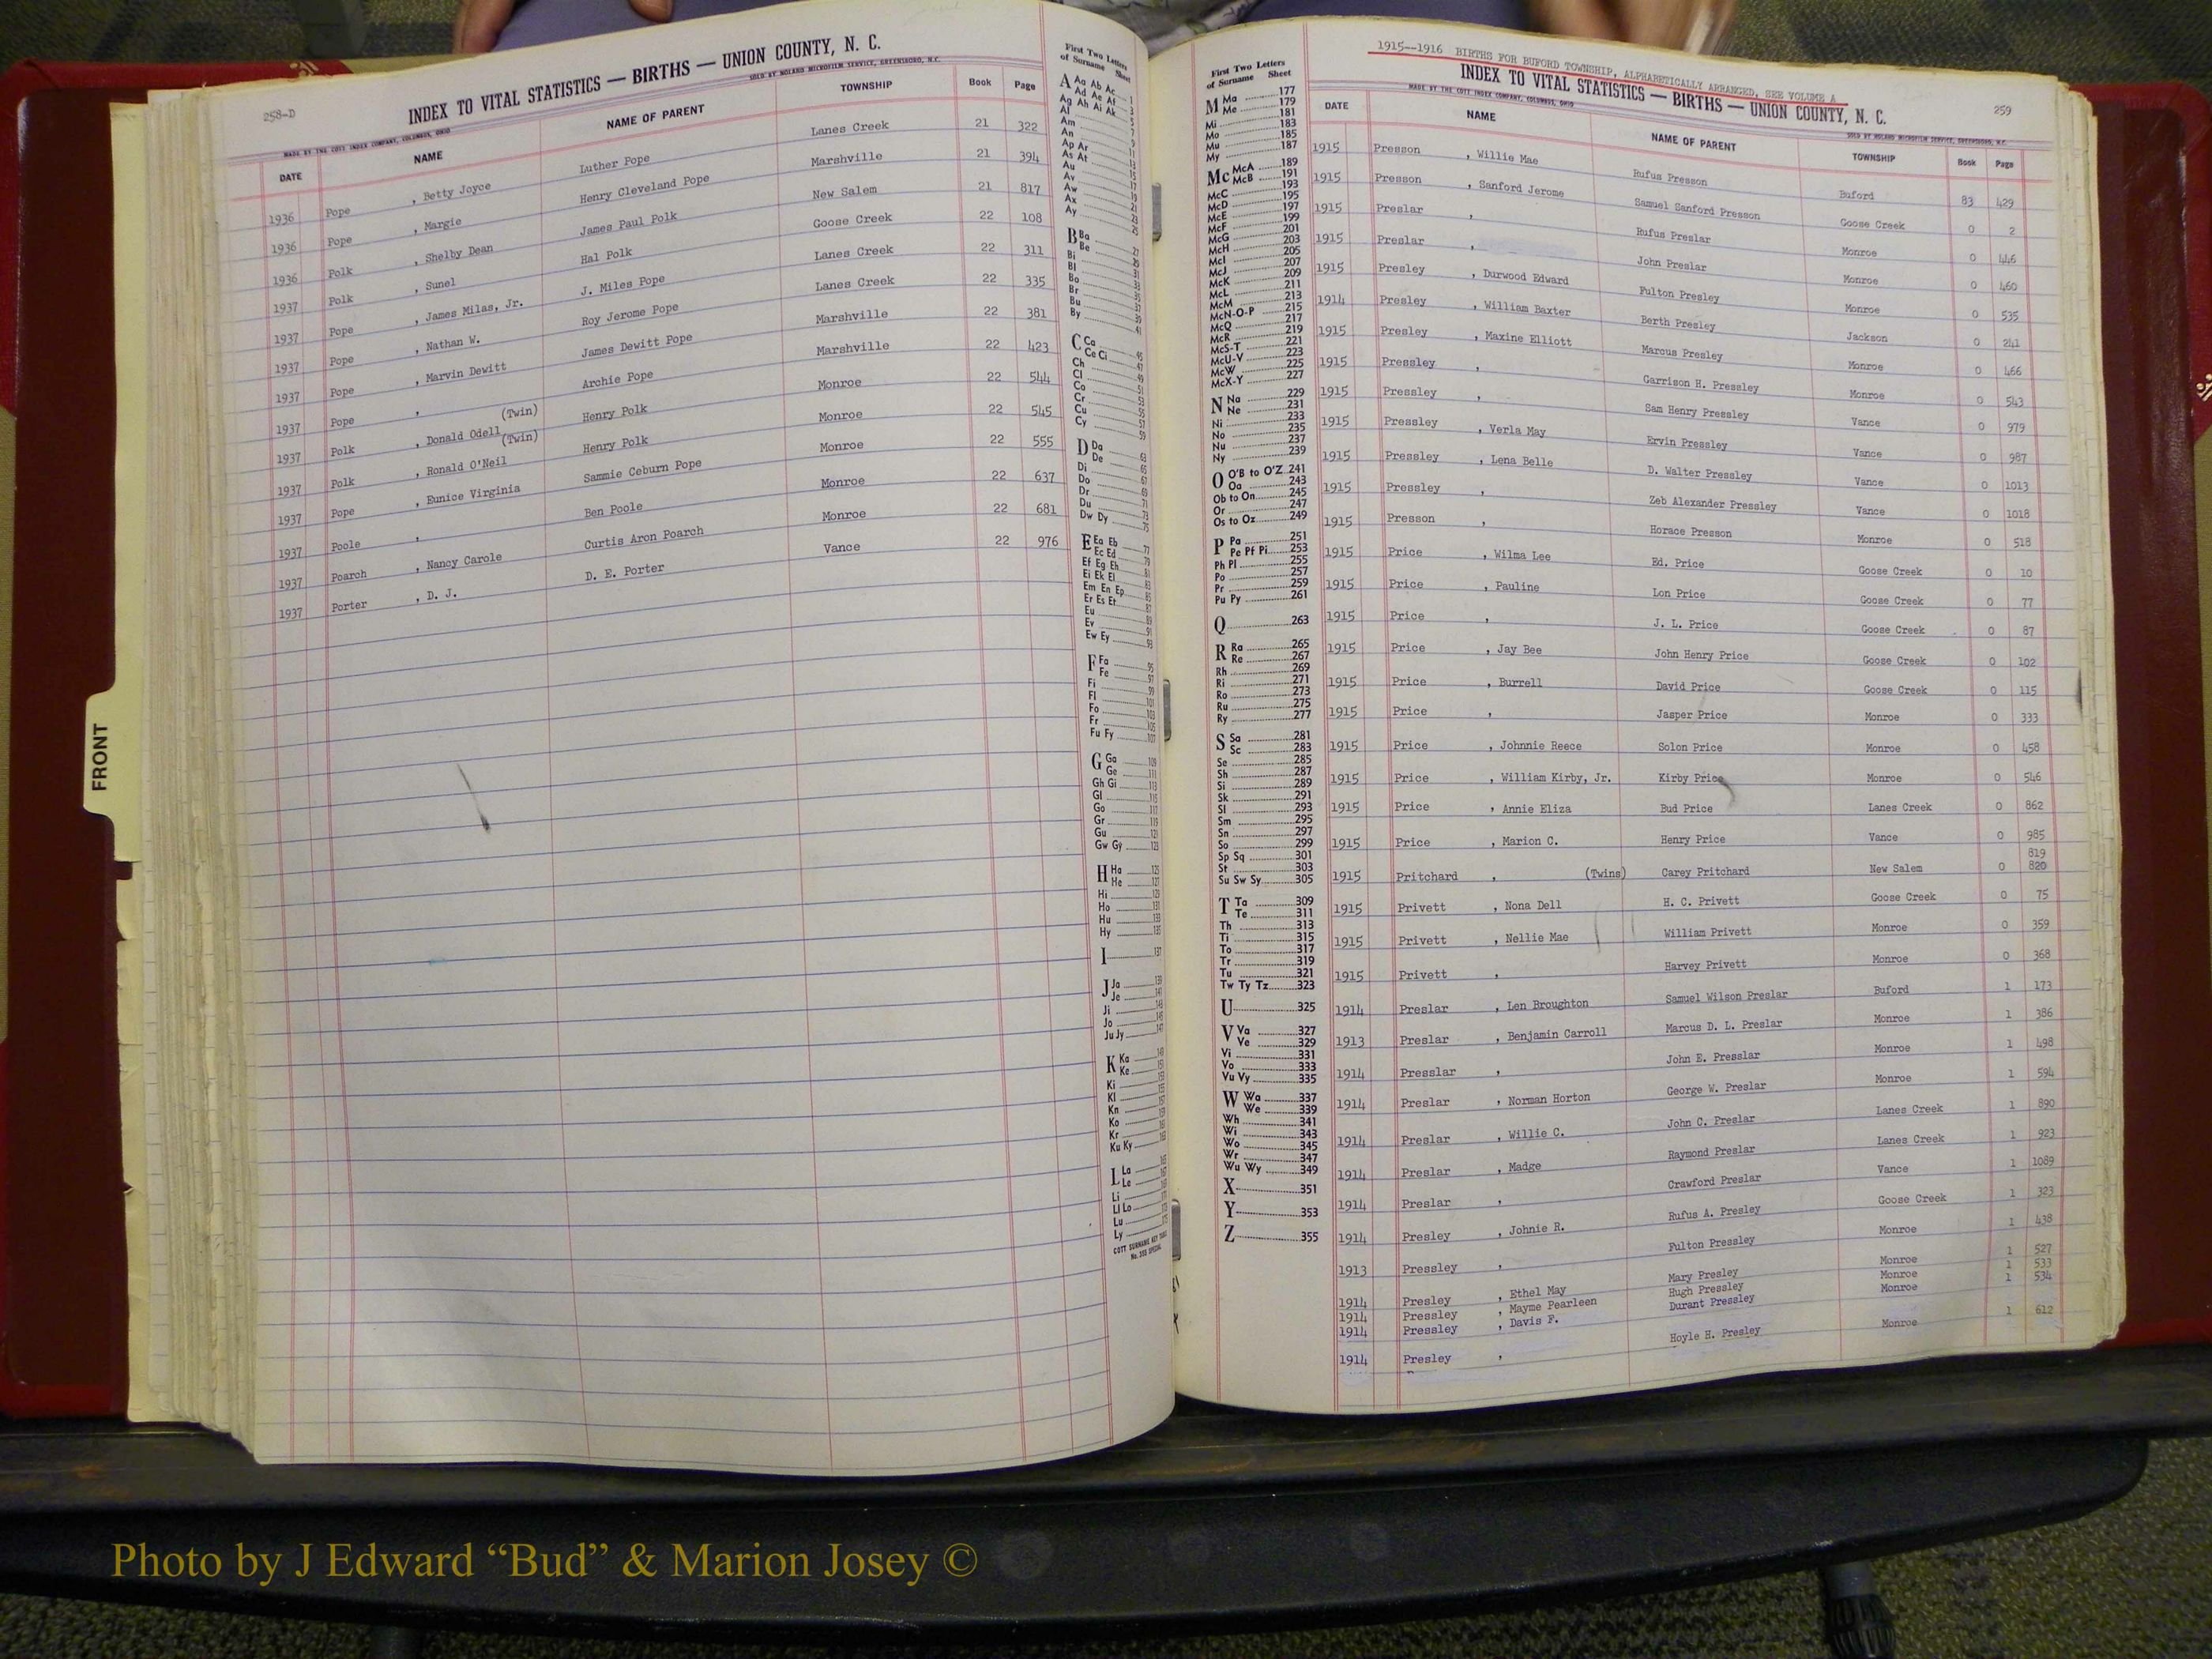 258-D
INDEX TO VITAL STATISTICS — BIRTHS — UNION COUNTY, N. C.
MADE BY THE COTT INDEX COMPANY, COLUMBUS, OHIO SOLD BY NOLAND MICROFILM SERVICE, GREENSBORO, N.C.
DATE NAME NAME OF PARENT TOWNSHIP Book Page
1936 Pope , Betty Joyce Luther Pope Lanes Creek 21 322
1936 Pope , Margie Henry Cleveland Pope Marshville 21 394
1936 Polk , Shelby Dean James Paul Polk New Salem 21 817
1937 Polk , Sunel Hal Polk Goose Creek 22 108
1937 Pope , James Milas, Jr. J. Miles Pope Lanes Creek 22 311
1937 Pope , Nathan W. Roy Jerome Pope Lanes Creek 22 335
1937 Pope , Marvin Dewitt James Dewitt Pope Marshville 22 381
1937 Pope , Archie Pope Marshville 22 423
1937 Polk , Donald Odell (Twin) Henry Polk Monroe 22 544
1937 Polk , Ronald O'Neil (Twin) Henry Polk Monroe 22 545
1937 Pope , Eunice Virginia Sammie Ceburn Pope Monroe 22 555
1937 Poole , Ben Poole Monroe 22 637
1937 Poarch , Nancy Carole Curtis Aron Poarch Monroe 22 681
1937 Porter , D. J. D. E. Porter Vance 22 976
FRONT
First Two Letters
of Surname Sheet
A Aa Ab Ac
Ad Ae Af
Ag Ah Ai Ak
Al
Am
An
Ap Ar
As At
Au
Av
Aw
Ax
Ay
B Ba
Be
Bi
Bl
Bo
Br
Bu
By
C Ca
Ce Ci
Ch
Cl
Co
Cr
Cu
Cy
D Da
De
Di
Do
Dr
Du
Dw Dy
E Ea Eb
Ec Ed
Ef Eg Eh
Ei Ek El
Em En Ep
Er Es Et
Eu
Ev
Ew Ey
F Fa
Fe
Fi
Fl
Fo
Fr
Fu Fy
G Ga
Ge
Gh Gi
Gl
Go
Gr
Gu
Gw Gy
H Ha
He
Hi
Ho
Hu
Hy
I
J Ja
Je
Ji
Jo
Ju Jy
K Ka
Ke
Ki
Kl
Kn
Ko
Kr
Ku Ky
L La
Le
Li
Ll Lo
Lu
Ly
First Two Letters
of Surname Sheet
M Ma 177
Me 179
Mi 181
Mo 183
Mu 185
My 187
Mc McA 189
McB 191
McC 193
McD 195
McE 197
McF 199
McG 201
McH 203
McI 205
McJ 207
McK 209
McL 211
McM 213
McN-O-P 215
McQ 217
McR 219
McS-T 221
McU-V 223
McW 225
McX-Y 227
N Na 229
Ne 231
Ni 233
No 235
Nu 237
Ny 239
O O'B to O'Z 241
Oa 243
Ob to On 245
Or 247
Os to Oz 249
P Pa 251
Pe Pf Pi 253
Ph Pl 255
Po 257
Pr 259
Pu Py 261
Q 263
R Ra 265
Re 267
Rh 269
Ri 271
Ro 273
Ru 275
Ry 277
S Sa 281
Sc 283
Se 285
Sh 287
Si 289
Sk 291
Sl 293
Sm 295
Sn 297
So 299
Sp Sq 301
St 303
Su Sw Sy 305
T Ta 309
Te 311
Th 313
Ti 315
To 317
Tr 319
Tu 321
Tw Ty Tz 323
U 325
V Va 327
Ve 329
Vi 331
Vo 333
Vu Vy 335
W Wa 337
We 339
Wh 341
Wi 343
Wo 345
Wr 347
Wu Wy 349
X 351
Y 353
Z 355
1915--1916 BIRTHS FOR BUFORD TOWNSHIP, ALPHABETICALLY ARRANGED, SEE VOLUME A
INDEX TO VITAL STATISTICS — BIRTHS — UNION COUNTY, N. C. 259
MADE BY THE COTT INDEX COMPANY, COLUMBUS, OHIO SOLD BY NOLAND MICROFILM SERVICE, GREENSBORO, N.C.
DATE NAME NAME OF PARENT TOWNSHIP Book Page
1915 Presson , Willie Mae Rufus Presson Buford 83 429
1915 Presson , Sanford Jerome Samuel Sanford Presson Goose Creek 0 2
1915 Preslar , Rufus Preslar Monroe 0 446
1915 Preslar , John Preslar Monroe 0 460
1915 Presley , Durwood Edward Fulton Presley Monroe 0 535
1914 Presley , William Baxter Berth Presley Jackson 0 241
1915 Presley , Maxine Elliott Marcus Presley Monroe 0 466
1915 Pressley , Garrison H. Pressley Monroe 0 543
1915 Pressley , Sam Henry Pressley Vance 0 979
1915 Pressley , Verla May Ervin Pressley Vance 0 987
1915 Pressley , Lena Belle D. Walter Pressley Vance 0 1013
1915 Pressley , Zeb Alexander Pressley Vance 0 1018
1915 Presson , Horace Presson Monroe 0 518
1915 Price , Wilma Lee Ed. Price Goose Creek 0 10
1915 Price , Pauline Lon Price Goose Creek 0 77
1915 Price , J. L. Price Goose Creek 0 87
1915 Price , Jay Bee John Henry Price Goose Creek 0 102
1915 Price , Burrell David Price Goose Creek 0 115
1915 Price , Jasper Price Monroe 0 333
1915 Price , Johnnie Reece Solon Price Monroe 0 458
1915 Price , William Kirby, Jr. Kirby Price Monroe 0 546
1915 Price , Annie Eliza Bud Price Lanes Creek 0 862
1915 Price , Marion C. Henry Price Vance 0 985
819
1915 Pritchard , (Twins) Carey Pritchard New Salem 0 820
1915 Privett , Nona Dell H. C. Privett Goose Creek 0 75
1915 Privett , Nellie Mae William Privett Monroe 0 359
1915 Privett , Harvey Privett Monroe 0 368
1914 Preslar , Len Broughton Samuel Wilson Preslar Buford 1 173
1913 Preslar , Benjamin Carroll Marcus D. L. Preslar Monroe 1 386
1914 Presslar , John E. Presslar Monroe 1 498
1914 Preslar , Norman Horton George W. Preslar Monroe 1 594
1914 Preslar , Willie C. John C. Preslar Lanes Creek 1 890
1914 Preslar , Madge Raymond Preslar Lanes Creek 1 923
1914 Preslar , Crawford Preslar Vance 1 1089
1914 Presley , Johnie R. Rufus A. Presley Goose Creek 1 323
1913 Pressley , Fulton Pressley Monroe 1 438
1914 Presley , Ethel May Mary Presley Monroe 1 527
1914 Pressley , Mayme Pearleen Hugh Pressley Monroe 1 533
1914 Pressley , Davis F. Durant Pressley Monroe 1 534
1914 Presley , Hoyle H. Presley Monroe 1 612
Photo by J Edward “Bud” & Marion Josey ©